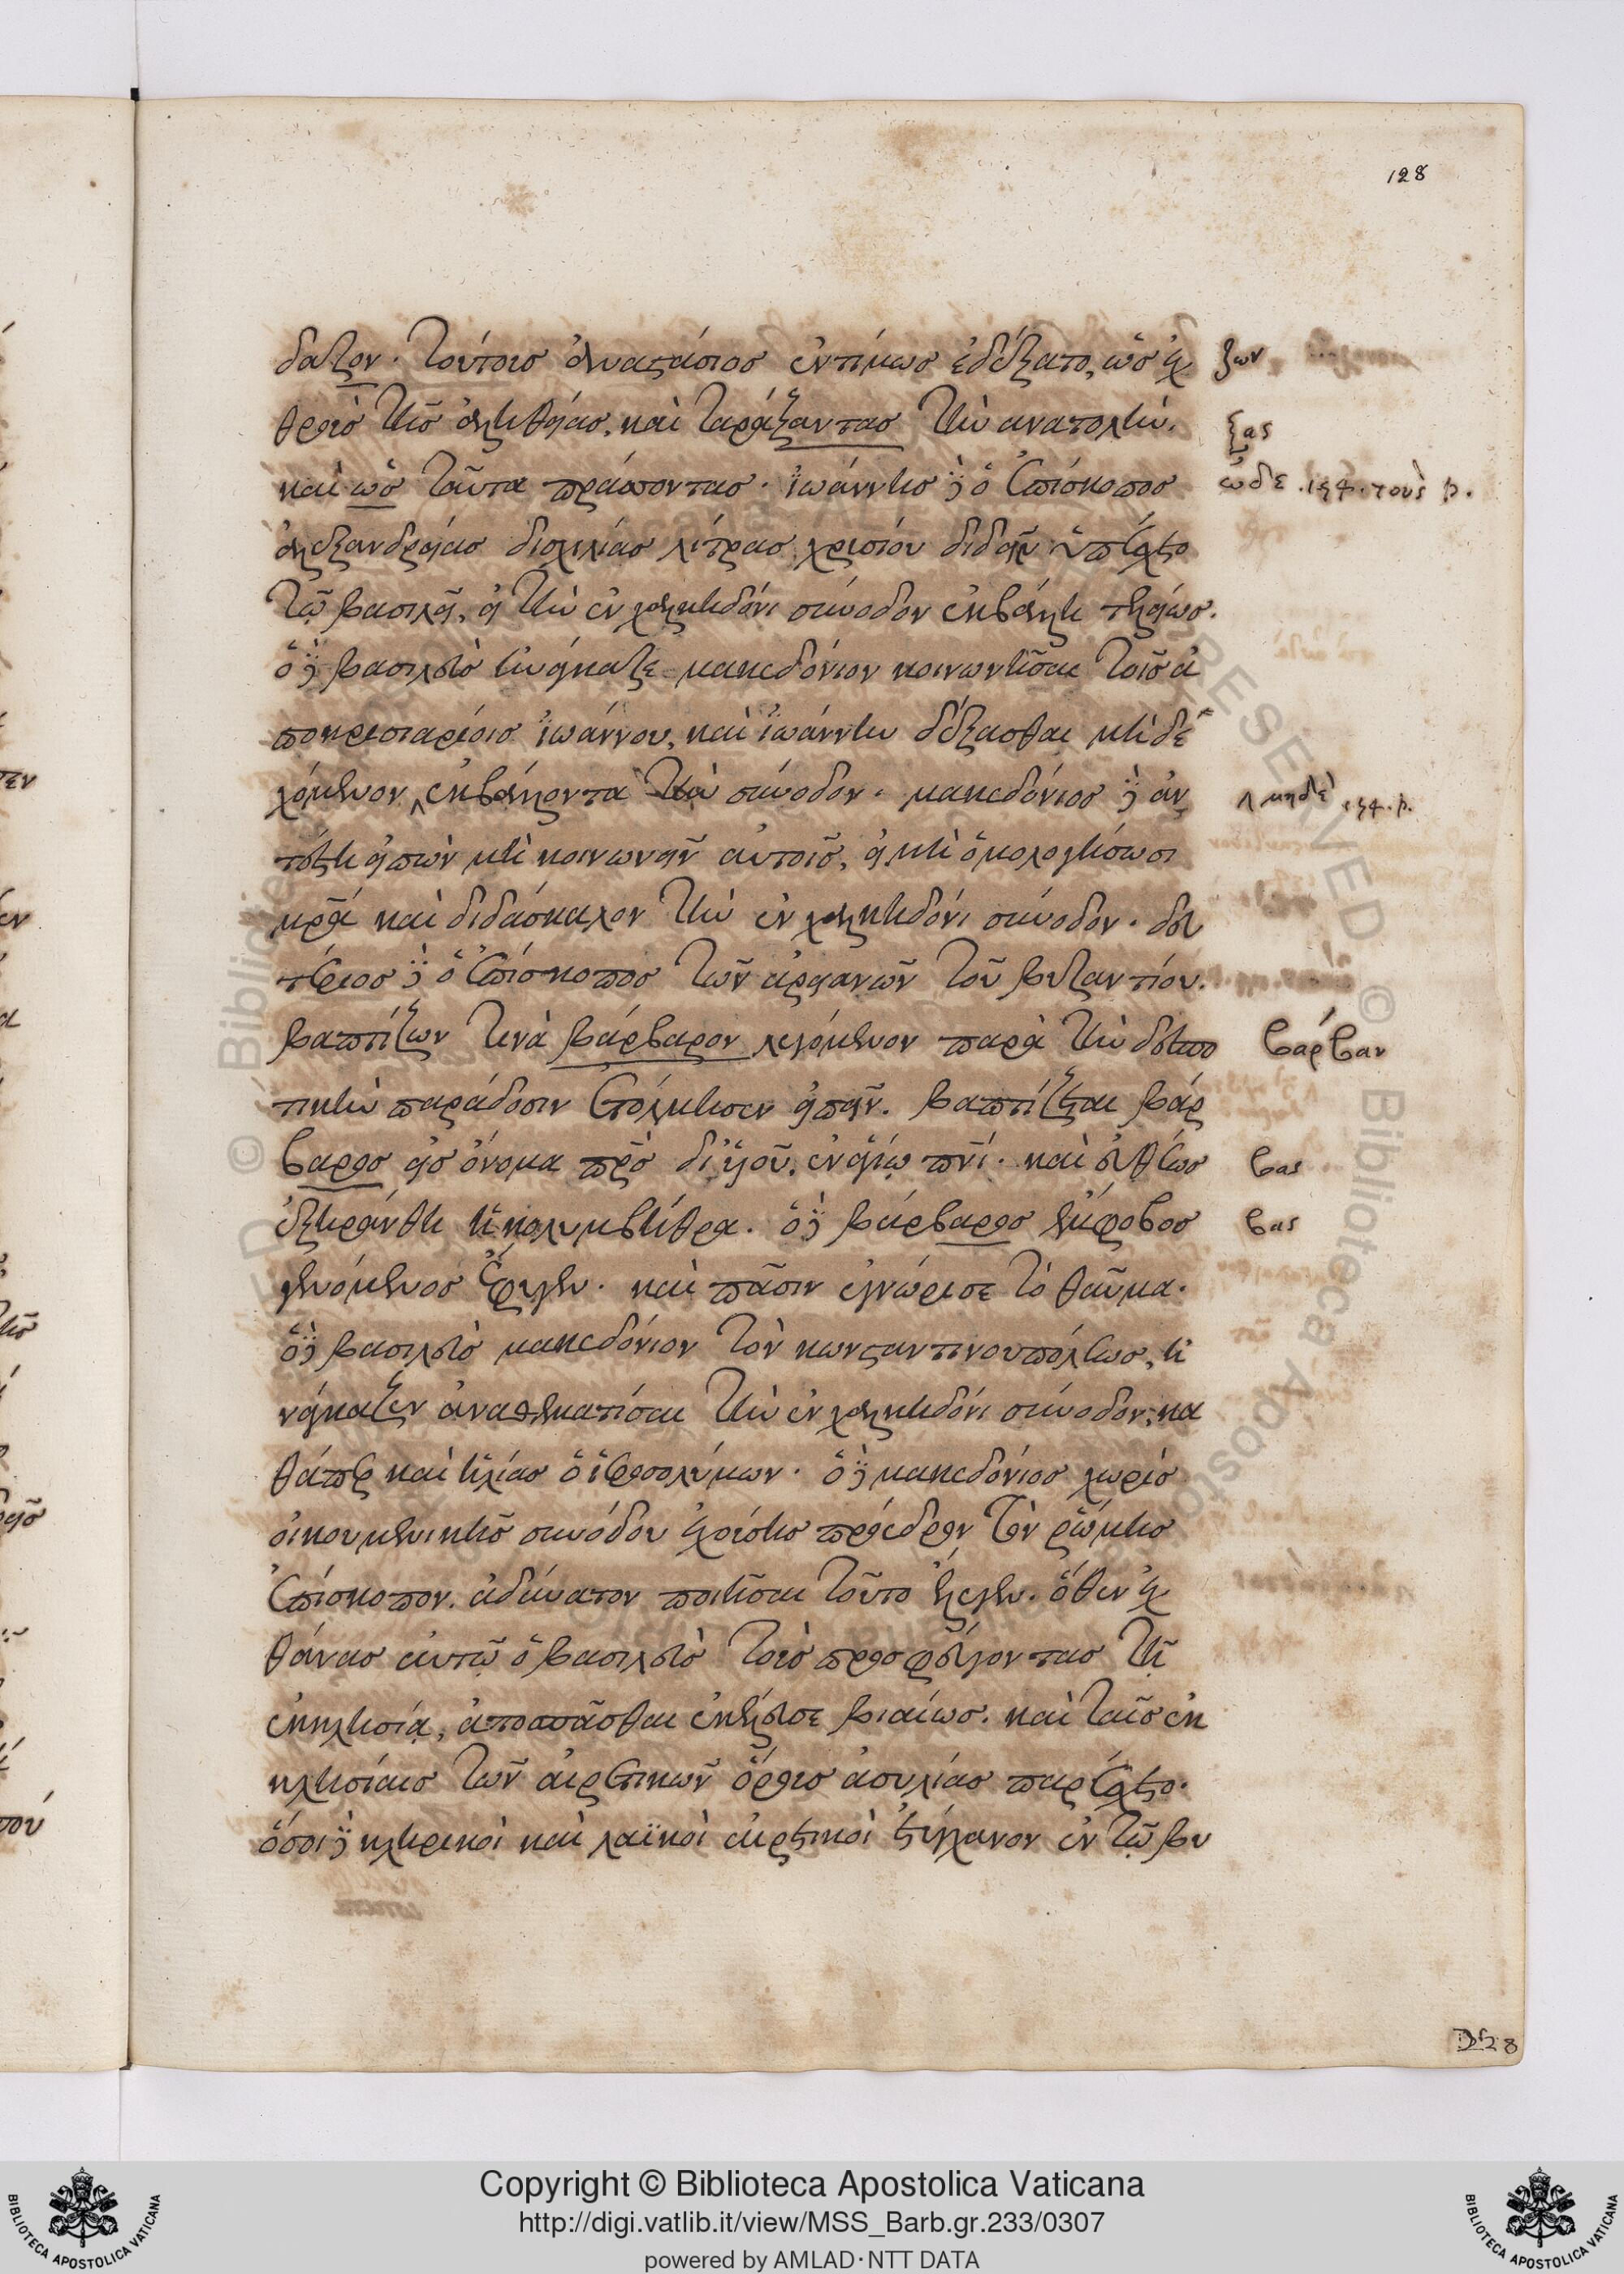 128
δαζον. τούτοις ἀναστάσιος ἐντίμως ἐδέξατο, ὡς ἐχ ζων
θροὺς τῆς ἀληθείας, καὶ ταράξαντας τὴν ανατολὴν, ξας
καὶ ὡς ταῦτα πράττοντας. ϊωάννης δὲ ὁ ἐπίσκοπος ὧδε . τοὺς
ἀλεξανδρείας δισχιλίας λίτρας χρυσίου διδόναι ὑπέσχετο
τῷ βασιλεῖ, εἰ τὴν ἐν χαλκηδόνι σύνοδον ἐκβάλη τελείως.
ὁ δὲ βασιλεὺς ἠνάγκαζε μακεδόνιον κοινωνῆσαι τοῖς ἀ
ποκρισιαρίοις ϊωάννου, καὶ ϊωάννην δέξασθαι μὴ δε
χόμενον ἐκβάλλοντα τὴν σύνοδον. μακεδόνιος δὲ ἀν μηδὲ
τέστη εἰπὼν μὴ κοινωνεῖν αὐτοῖς, εἰ μὴ ὁμολογήσωσι
μρᾶ καὶ διδάσκαλον τὴν ἐν χαλκηδόνι σύνοδον. δευ
τέριος δὲ ὁ ἐπίσκοπος τῶν ἀρειανῶν τοῦ βυζαντίου.
βαπτίζων τινὰ βάρβαρον λεγόμενον παρὰ τὴν δεσπο βάρβαν
τικὴν παράδοσιν ἐτόλμησεν εἰπεῖν. βαπτίζεται βάρ
βαρος εἰς ὄνομα πρς δι' υἱοῦ, ἐν ἁγίω πνι. καὶ εὐθέως βας
ἐξηράνθη ἡ κολυμβήθρα. ὁ δὲ βάρβαρος ἔκφοβος βας
γενόμενος ἔφυγεν. καὶ πᾶσιν ἐγνώρισε τὸ θαῦμα.
ὁ δὲ βασιλεὺς μακεδόνιον τὸν κωνσταντινουπόλεως, ἠ
νάγκαζεν ἀναθεματίσαι τὴν ἐν χαλκηδόνι σύνοδον, κα
θάπερ καὶ ἡλίας ὁ ἱεροσολύμων. ὁ δὲ μακεδόνιος χωρὶς
οἰκουμενικῆς συνόδου ἐχούσης πρόεδρον τὸν ῥώμης
ἐπίσκοπον. ἀδύνατον ποιῆσαι τοῦτο ἔλεγεν. ὅθεν ἐχ
θάνας αὐτῷ ὁ βασιλεὺς τοὺς προσφεύγοντας τῇ
ἐκκλησίᾳ, ἀποσπᾶσθαι ἐκέλευσε βιαίως. καὶ ταῖς ἐκ
κλησίαις τῶν αἱρετικῶν ὅρους ἀσυλίας παρέσχετο.
ὅσοι δὲ κληρικοὶ καὶ λαϊκοὶ αἱρετικοὶ ἐτύγχανον ἐν τῷ βυ
Copyright © Biblioteca Apostolica Vaticana
http://digi.vatlib.it/view/MSS_Barb.gr.233/0307
powered by AMLAD·NTT DATA
BIBLIOTECA APOSTOLICA VATICANA
BIBLIOTECA APOSTOLICA VATICANA